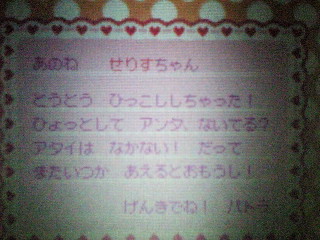 あのね　せりすちゃん
とうとう　ひっこししちゃった！
ひょっとして　アンタ、ないてる？
アタイは　なかない！　だって
またいつか　あえるとおもうし！
げんきでね！　パトラ